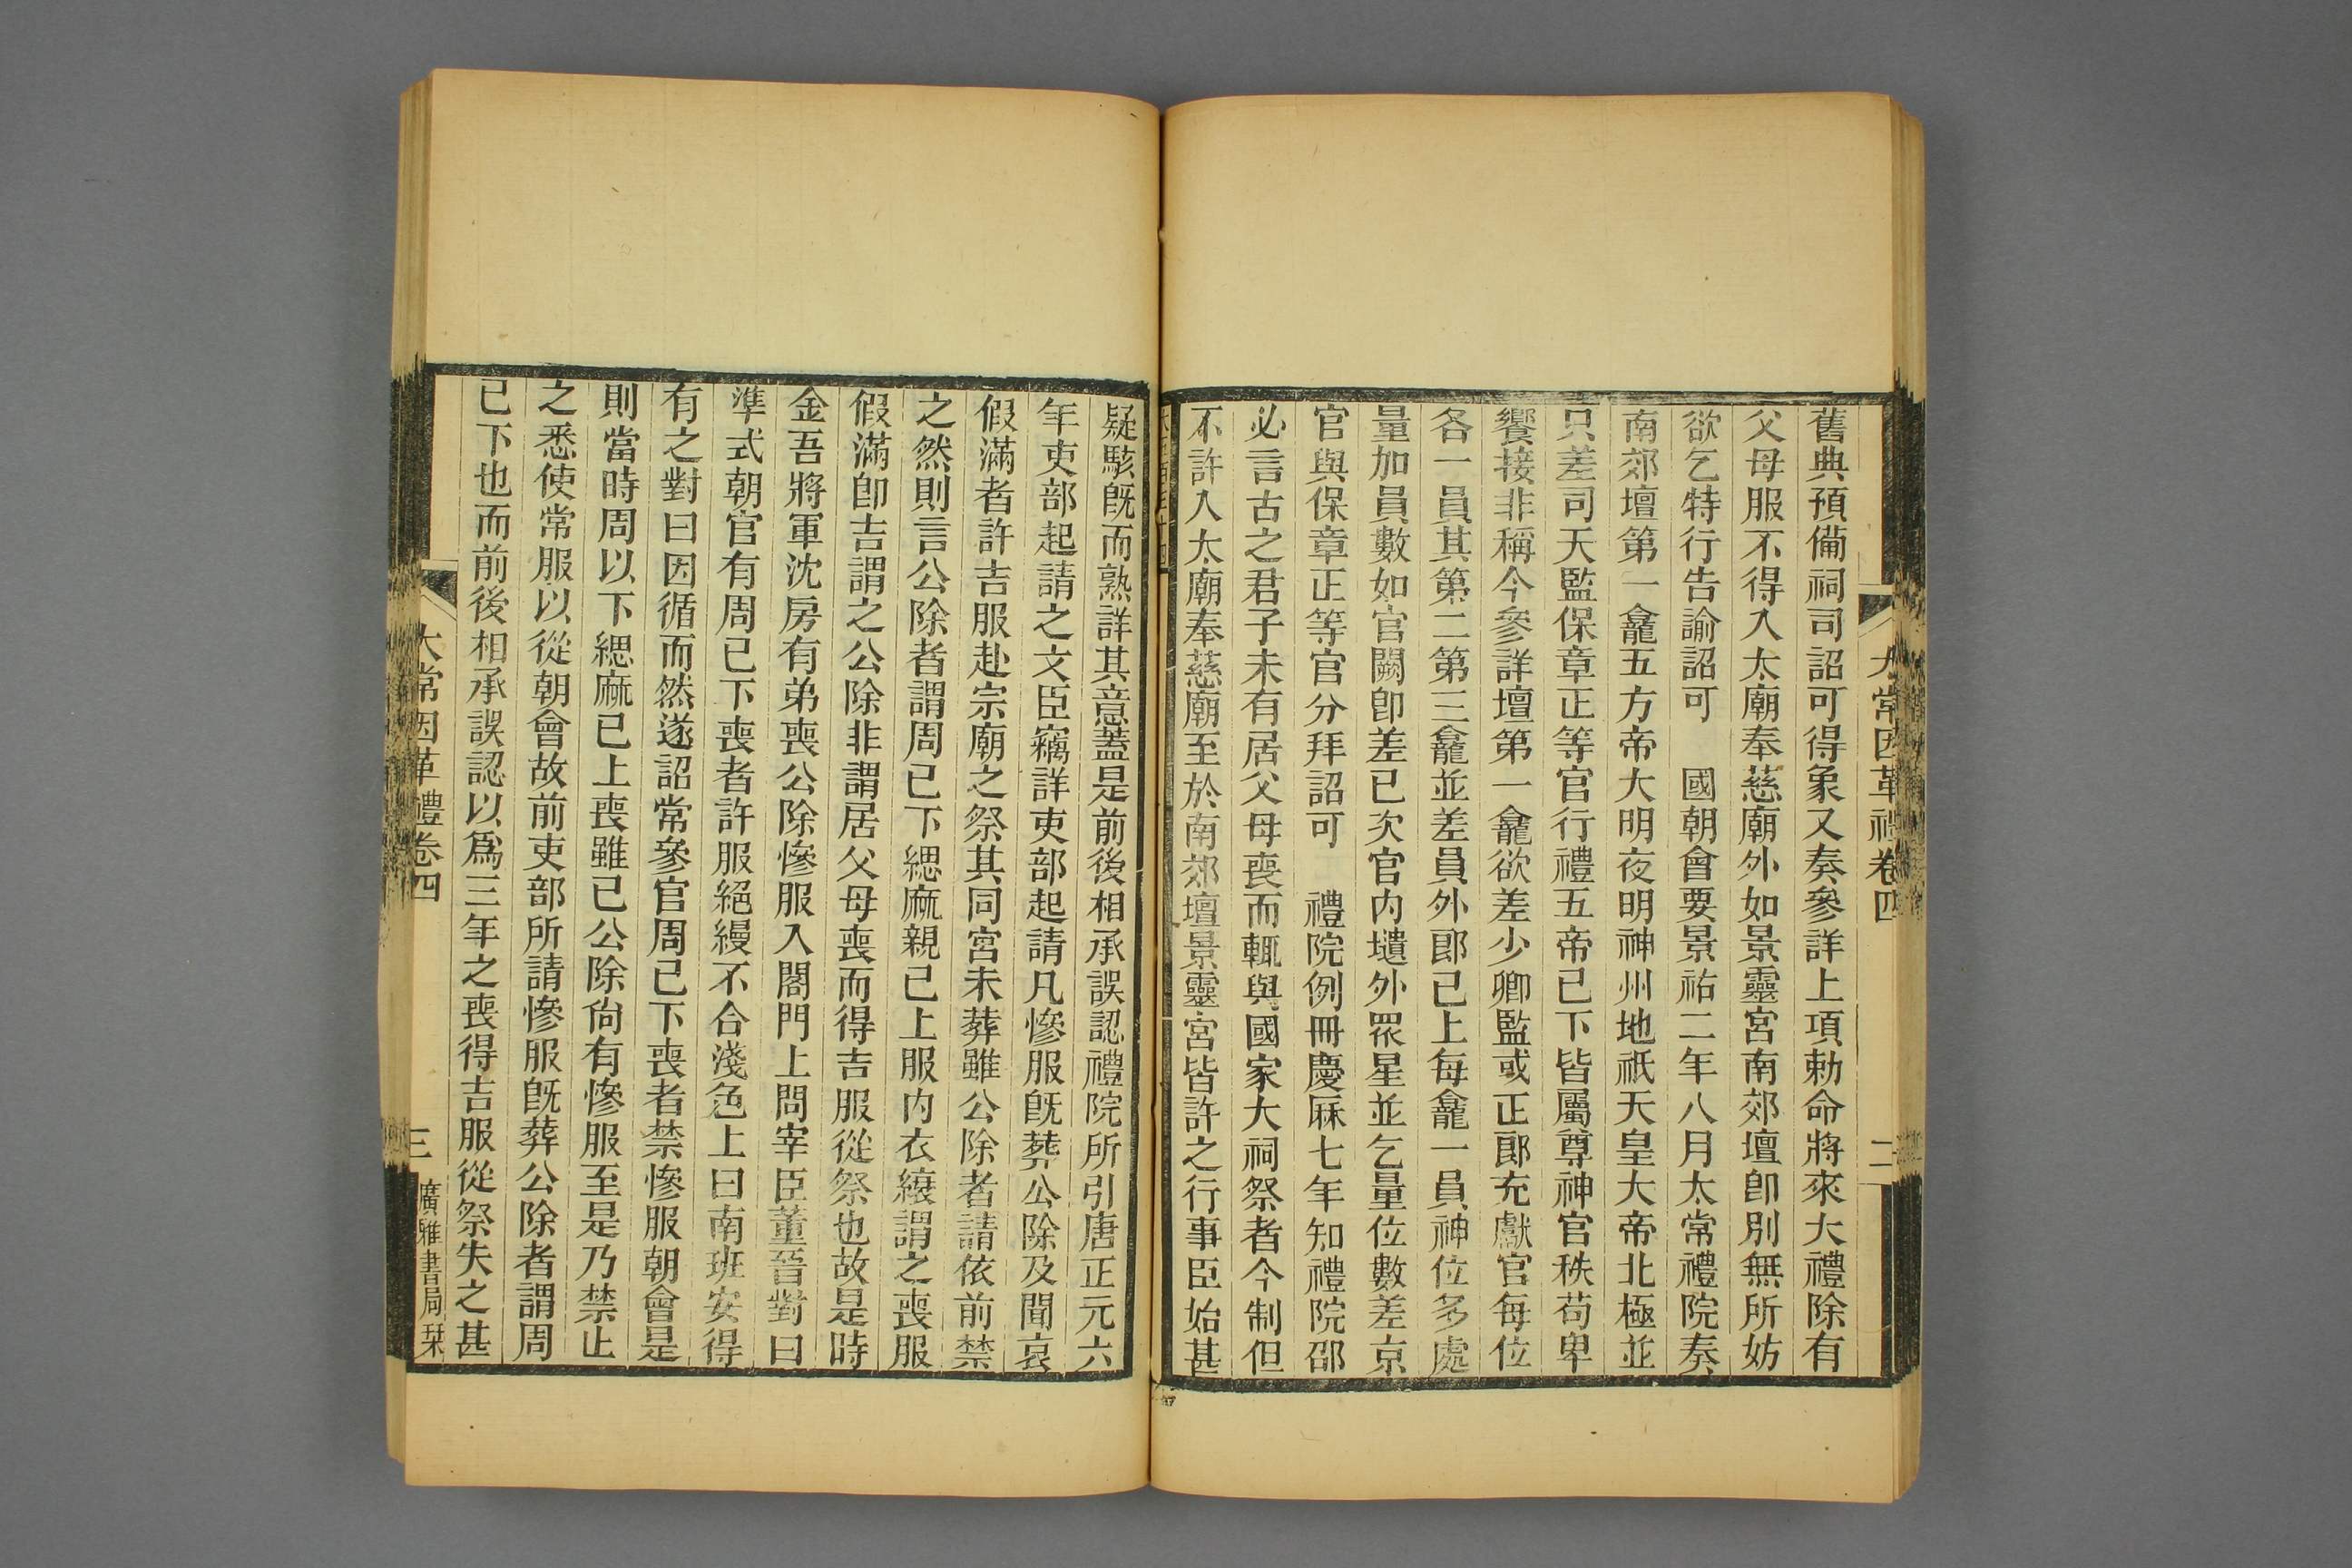 大常因革禮卷四
二
舊典預備祠司詔可得象又奏參詳上項勅命將來大禮除有
父母服不得入太廟奉慈廟外如景靈宮南郊壇卽別無所妨
欲乞特行告諭詔可　國朝會要景祐二年八月太常禮院奏
南郊壇第一龕五方帝大明夜明神州地祇天皇大帝北極並
只差司天監保章正等官行禮五帝已下皆屬尊神官秩苟卑
饗接非稱今參詳壇第一龕欲差少卿監或正郞充獻官每位
各一員其第二第三龕並差員外郞已上每龕一員神位多處
量加員數如官闕卽差已次官內壝外眾星並乞量位數差京
官與保章正等官分拜詔可　禮院例冊慶厤七年知禮院邵
必言古之君子未有居父母喪而輒與國家大祠祭者今制但
不許入太廟奉慈廟至於南郊壇景靈宮皆許之行事臣始甚
疑駭旣而熟詳其意蓋是前後相承誤認禮院所引唐正元六
年吏部起請之文臣竊詳吏部起請凡慘服旣葬公除及聞哀
假滿者許吉服赴宗廟之祭其同宮未葬雖公除者請依前禁
之然則言公除者謂周已下緦麻親已上服內衣縗謂之喪服
假滿卽吉謂之公除非謂居父母喪而得吉服從祭也故是時
金吾將軍沈房有弟喪公除慘服入閤門上問宰臣董晉對曰
準式朝官有周已下喪者許服絕縵不合淺色上曰南班安得
有之對曰因循而然遂詔常參官周已下喪者禁慘服朝會是
則當時周以下緦麻已上喪雖已公除尙有慘服至是乃禁止
之悉使常服以從朝會故前吏部所請慘服旣葬公除者謂周
已下也而前後相承誤認以爲三年之喪得吉服從祭失之甚
大常因革禮卷四
三
廣雅書局栞